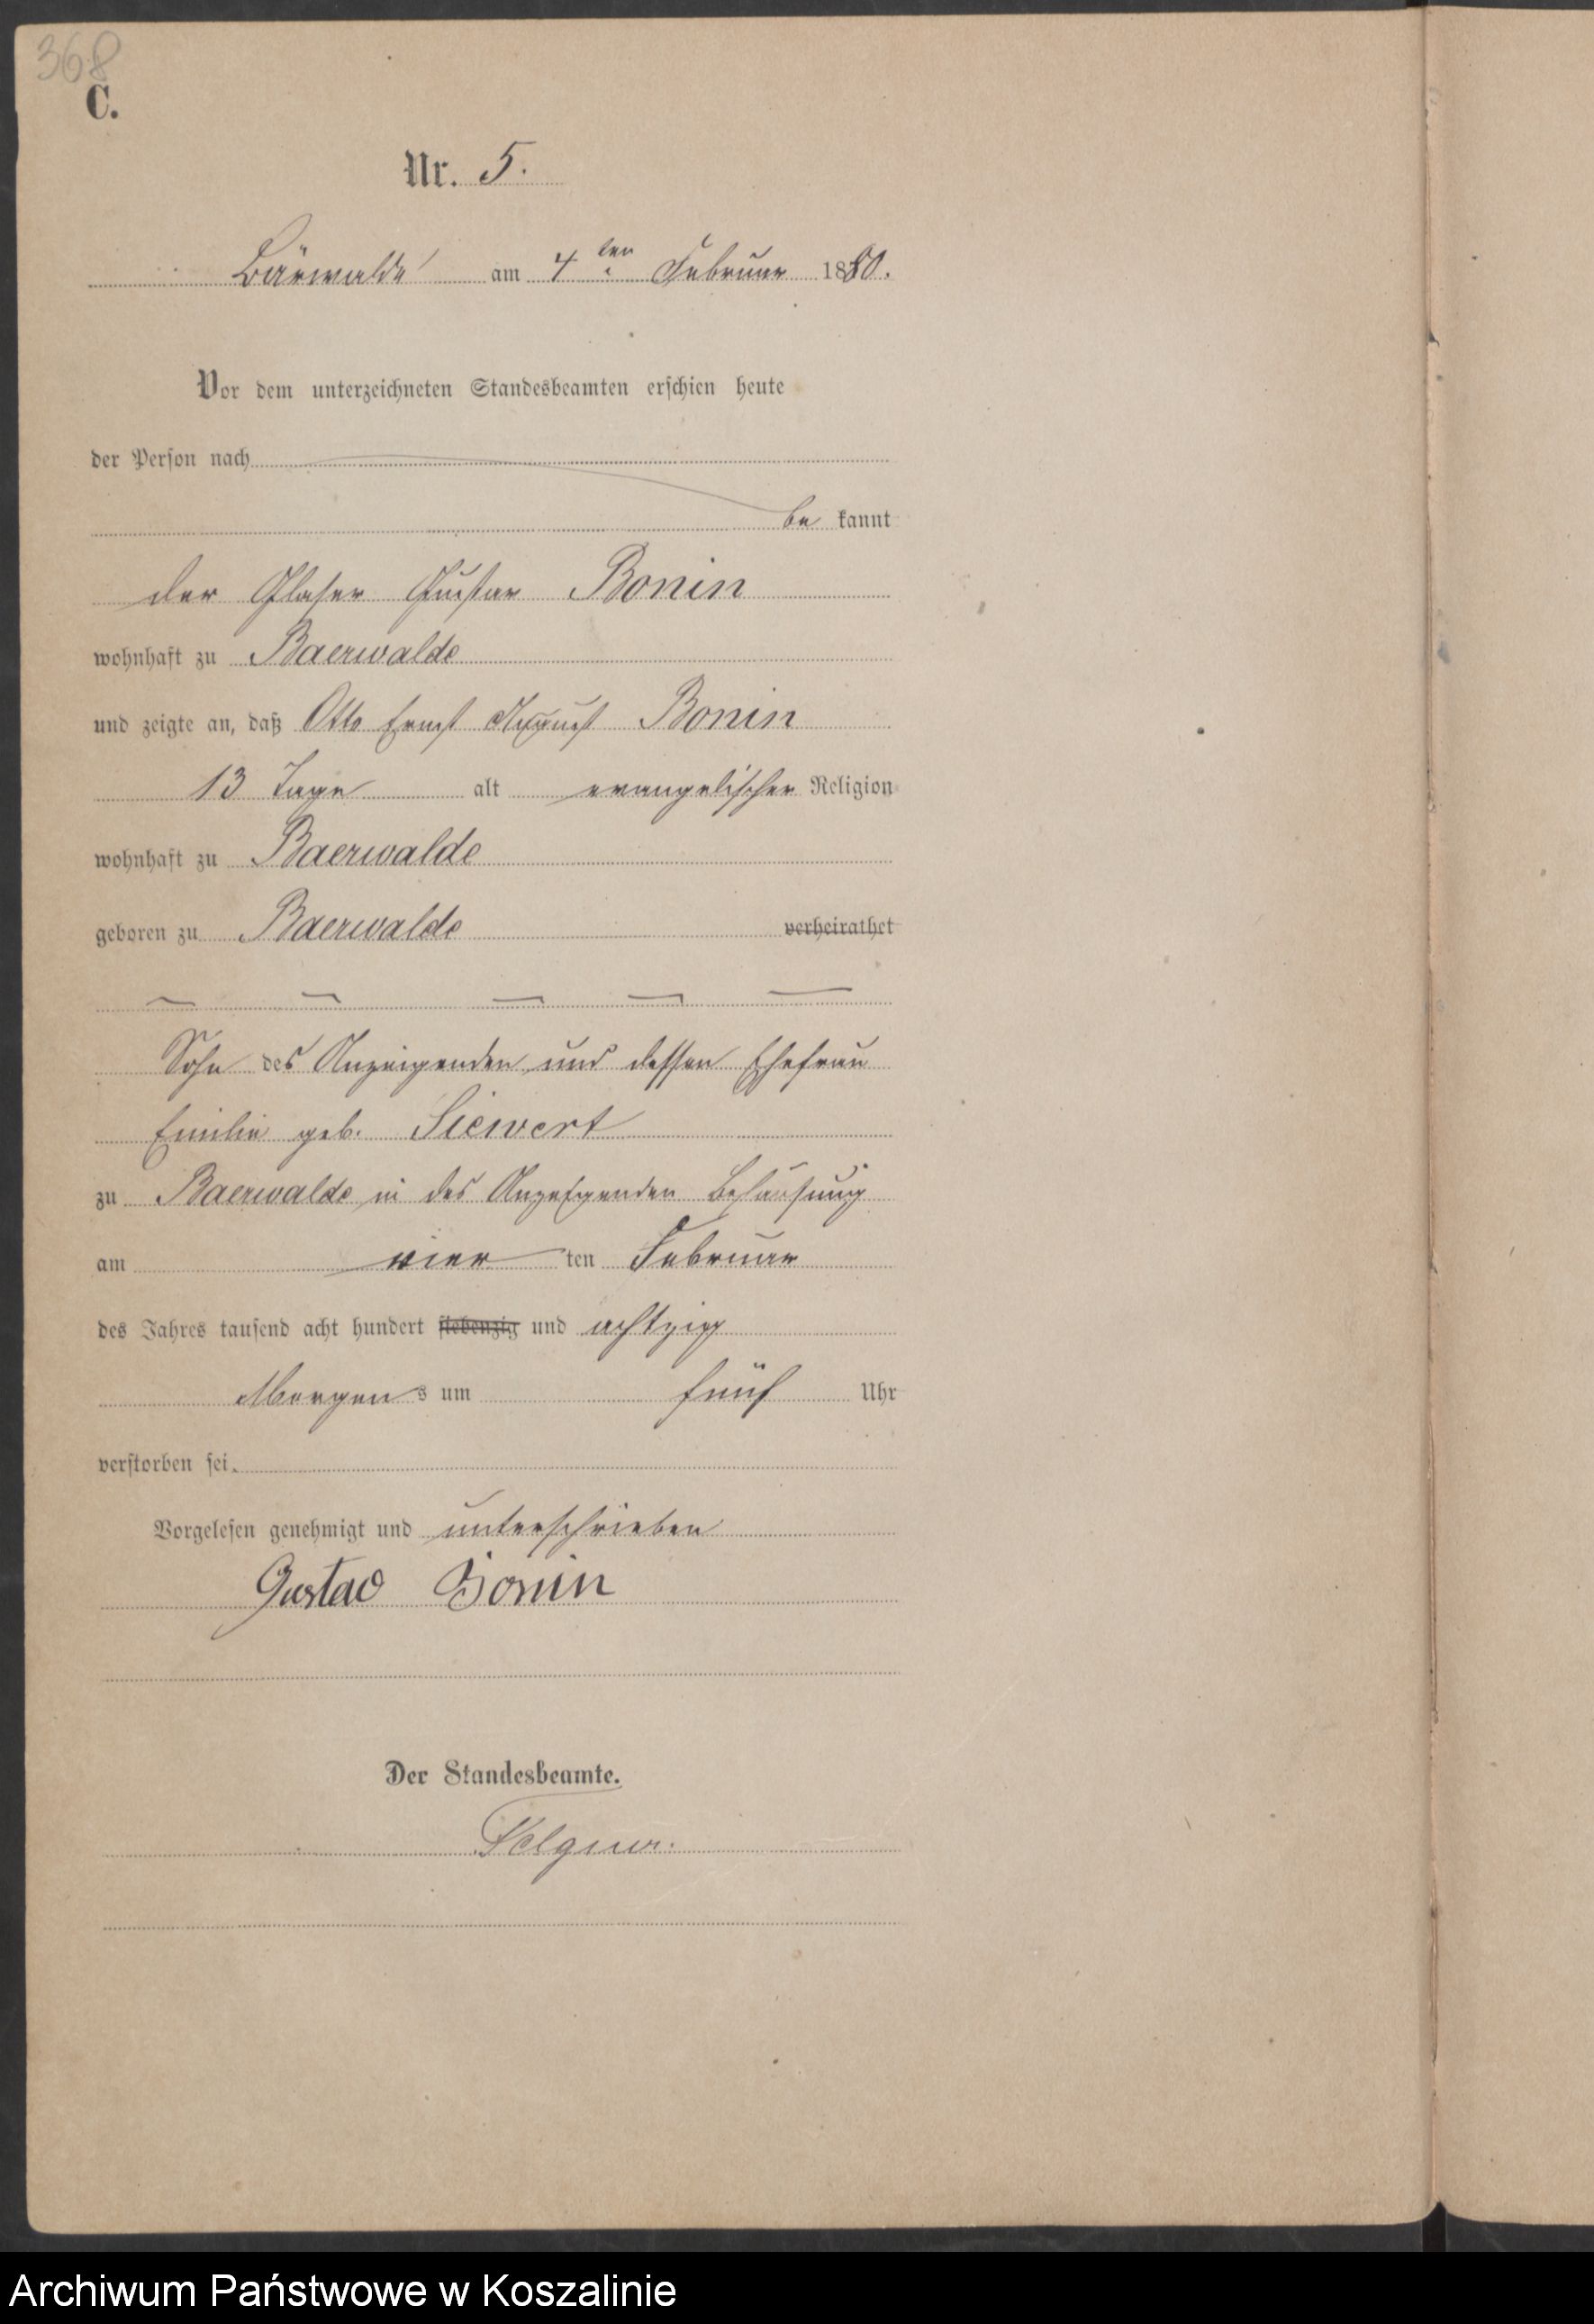 368
C.
Nr. 5.
Bärwalde am 4ten Februar 1880.
Vor dem unterzeichneten Standesbeamten erschien heute
der Person nach
be kannt
der Glaser Gustav Bonin
wohnhaft zu Baerwalde
und zeigte an, daß Otto Ernst August Bonin
13 Tage alt evangelischer Religion
wohnhaft zu Baerwalde
geboren zu Baerwalde verheirathet
Sohn des Anzeigenden und dessen Ehefrau
Emilie geb. Siewert
zu Baerwalde in des Anzeigenden Behausung
am vier ten Februar
des Jahres tausend acht hundert siebenzig und achtzig
Morgens um fünf Uhr
verstorben sei.
Vorgelesen genehmigt und unterschrieben
Gustav Bonin
Der Standesbeamte.
Archiwum Państwowe w Koszalinie